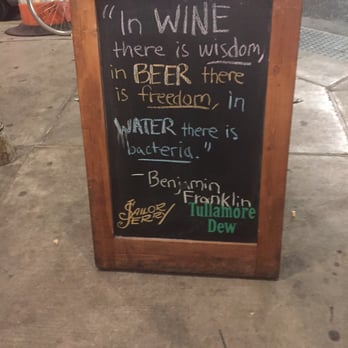 "In WINE
there is wisdom,
in BEER there
is freedom, in
WATER there is
bacteria."
- Benjamin
Franklin
SAILOR
JERRY
Tullamore
Dew